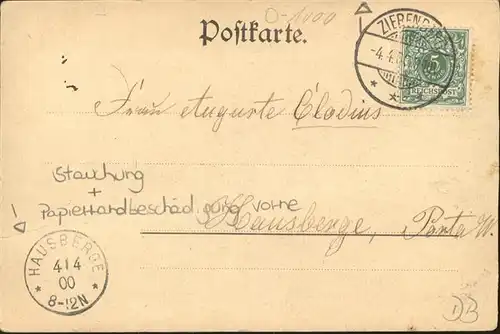 D-1000
Postkarte.
5
REICHSPOST
-4.4.
Frau Auguste Clodius
Stauchung
+
Papierrandbeschädigung vorne
Hausberge, Porta W.
HAUSBERGE
4/4
00
8-12N